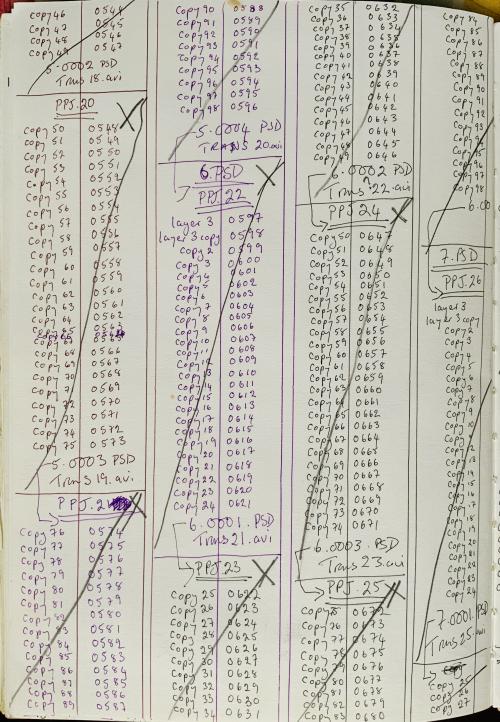 copy 46 0544
copy 47 0545
copy 48 0546
copy 49 0547
5.0002 PSD
Trans 18.avi
PPJ.20
copy 50 0548
copy 51 0549
copy 52 0550
copy 53 0551
copy 54 0552
copy 55 0553
copy 56 0554
copy 57 0555
copy 58 0556
copy 59 0557
copy 60 0558
copy 61 0559
copy 62 0560
copy 63 0561
copy 64 0562
copy 65 0563
copy 68 0566
copy 69 0567
copy 70 0568
copy 71 0569
copy 72 0570
copy 73 0571
copy 74 0572
copy 75 0573
5.0003 PSD
Trans 19.avi
PPJ.21
copy 76 0574
copy 77 0575
copy 78 0576
copy 79 0577
copy 80 0578
copy 81 0579
copy 82 0580
copy 83 0581
copy 84 0582
copy 85 0583
copy 86 0584
copy 87 0585
copy 88 0586
copy 89 0587
copy 90 0588
copy 91 0589
copy 92 0590
copy 93 0591
copy 94 0592
copy 95 0593
copy 96 0594
copy 97 0595
copy 98 0596
5.0004 PSD
TRANS 20.avi
6.PSD
PPJ.22
layer 3 0597
layer 3 copy 0598
copy 2 0599
copy 3 0600
copy 4 0601
copy 5 0602
copy 6 0603
copy 7 0604
copy 8 0605
copy 9 0606
copy 10 0607
copy 11 0608
copy 12 0609
copy 13 0610
copy 14 0611
copy 15 0612
copy 16 0613
copy 17 0614
copy 18 0615
copy 19 0616
copy 20 0617
copy 21 0618
copy 22 0619
copy 23 0620
copy 24 0621
6.0001.PSD
Trans 21.avi
PPJ.23
copy 25 0622
copy 26 0623
copy 27 0624
copy 28 0625
copy 29 0626
copy 30 0627
copy 31 0628
copy 32 0629
copy 33 0630
copy 34 0631
copy 35 0632
copy 36 0633
copy 37 0634
copy 38 0635
copy 39 0636
copy 40 0637
copy 41 0638
copy 42 0639
copy 43 0640
copy 44 0641
copy 45 0642
copy 46 0643
copy 47 0644
copy 48 0645
copy 49 0646
6.0002 PSD
Trans 22.avi
PPJ 24
copy 50 0647
copy 51 0648
copy 52 0649
copy 53 0650
copy 54 0651
copy 55 0652
copy 56 0653
copy 57 0654
copy 58 0655
copy 59 0656
copy 60 0657
copy 61 0658
copy 62 0659
copy 63 0660
copy 64 0661
copy 65 0662
copy 66 0663
copy 67 0664
copy 68 0665
copy 69 0666
copy 70 0667
copy 71 0668
copy 72 0669
copy 73 0670
copy 74 0671
6.0003.PSD
Trans 23.avi
PPJ.25
copy 75 0672
copy 76 0673
copy 77 0674
copy 78 0675
copy 79 0676
copy 80 0677
copy 81 0678
copy 82 0679
copy 83 0680
copy 84
copy 85
copy 86
copy 87
copy 88
copy 89
copy 90
copy 91
copy 92
copy 93
copy 94
copy 95
copy 96
copy 97
copy 98
6.00
7.PSD
PPJ.26
layer 3
layer 3 copy
copy 2
copy 3
copy 4
copy 5
copy 6
copy 7
copy 8
copy 9
copy 10
copy 11
copy 12
copy 13
copy 14
copy 15
copy 16
copy 17
copy 18
copy 19
copy 20
copy 21
copy 22
copy 23
copy 24
7.0001.PSD
Trans 25.avi
copy 25
copy 26
copy 27